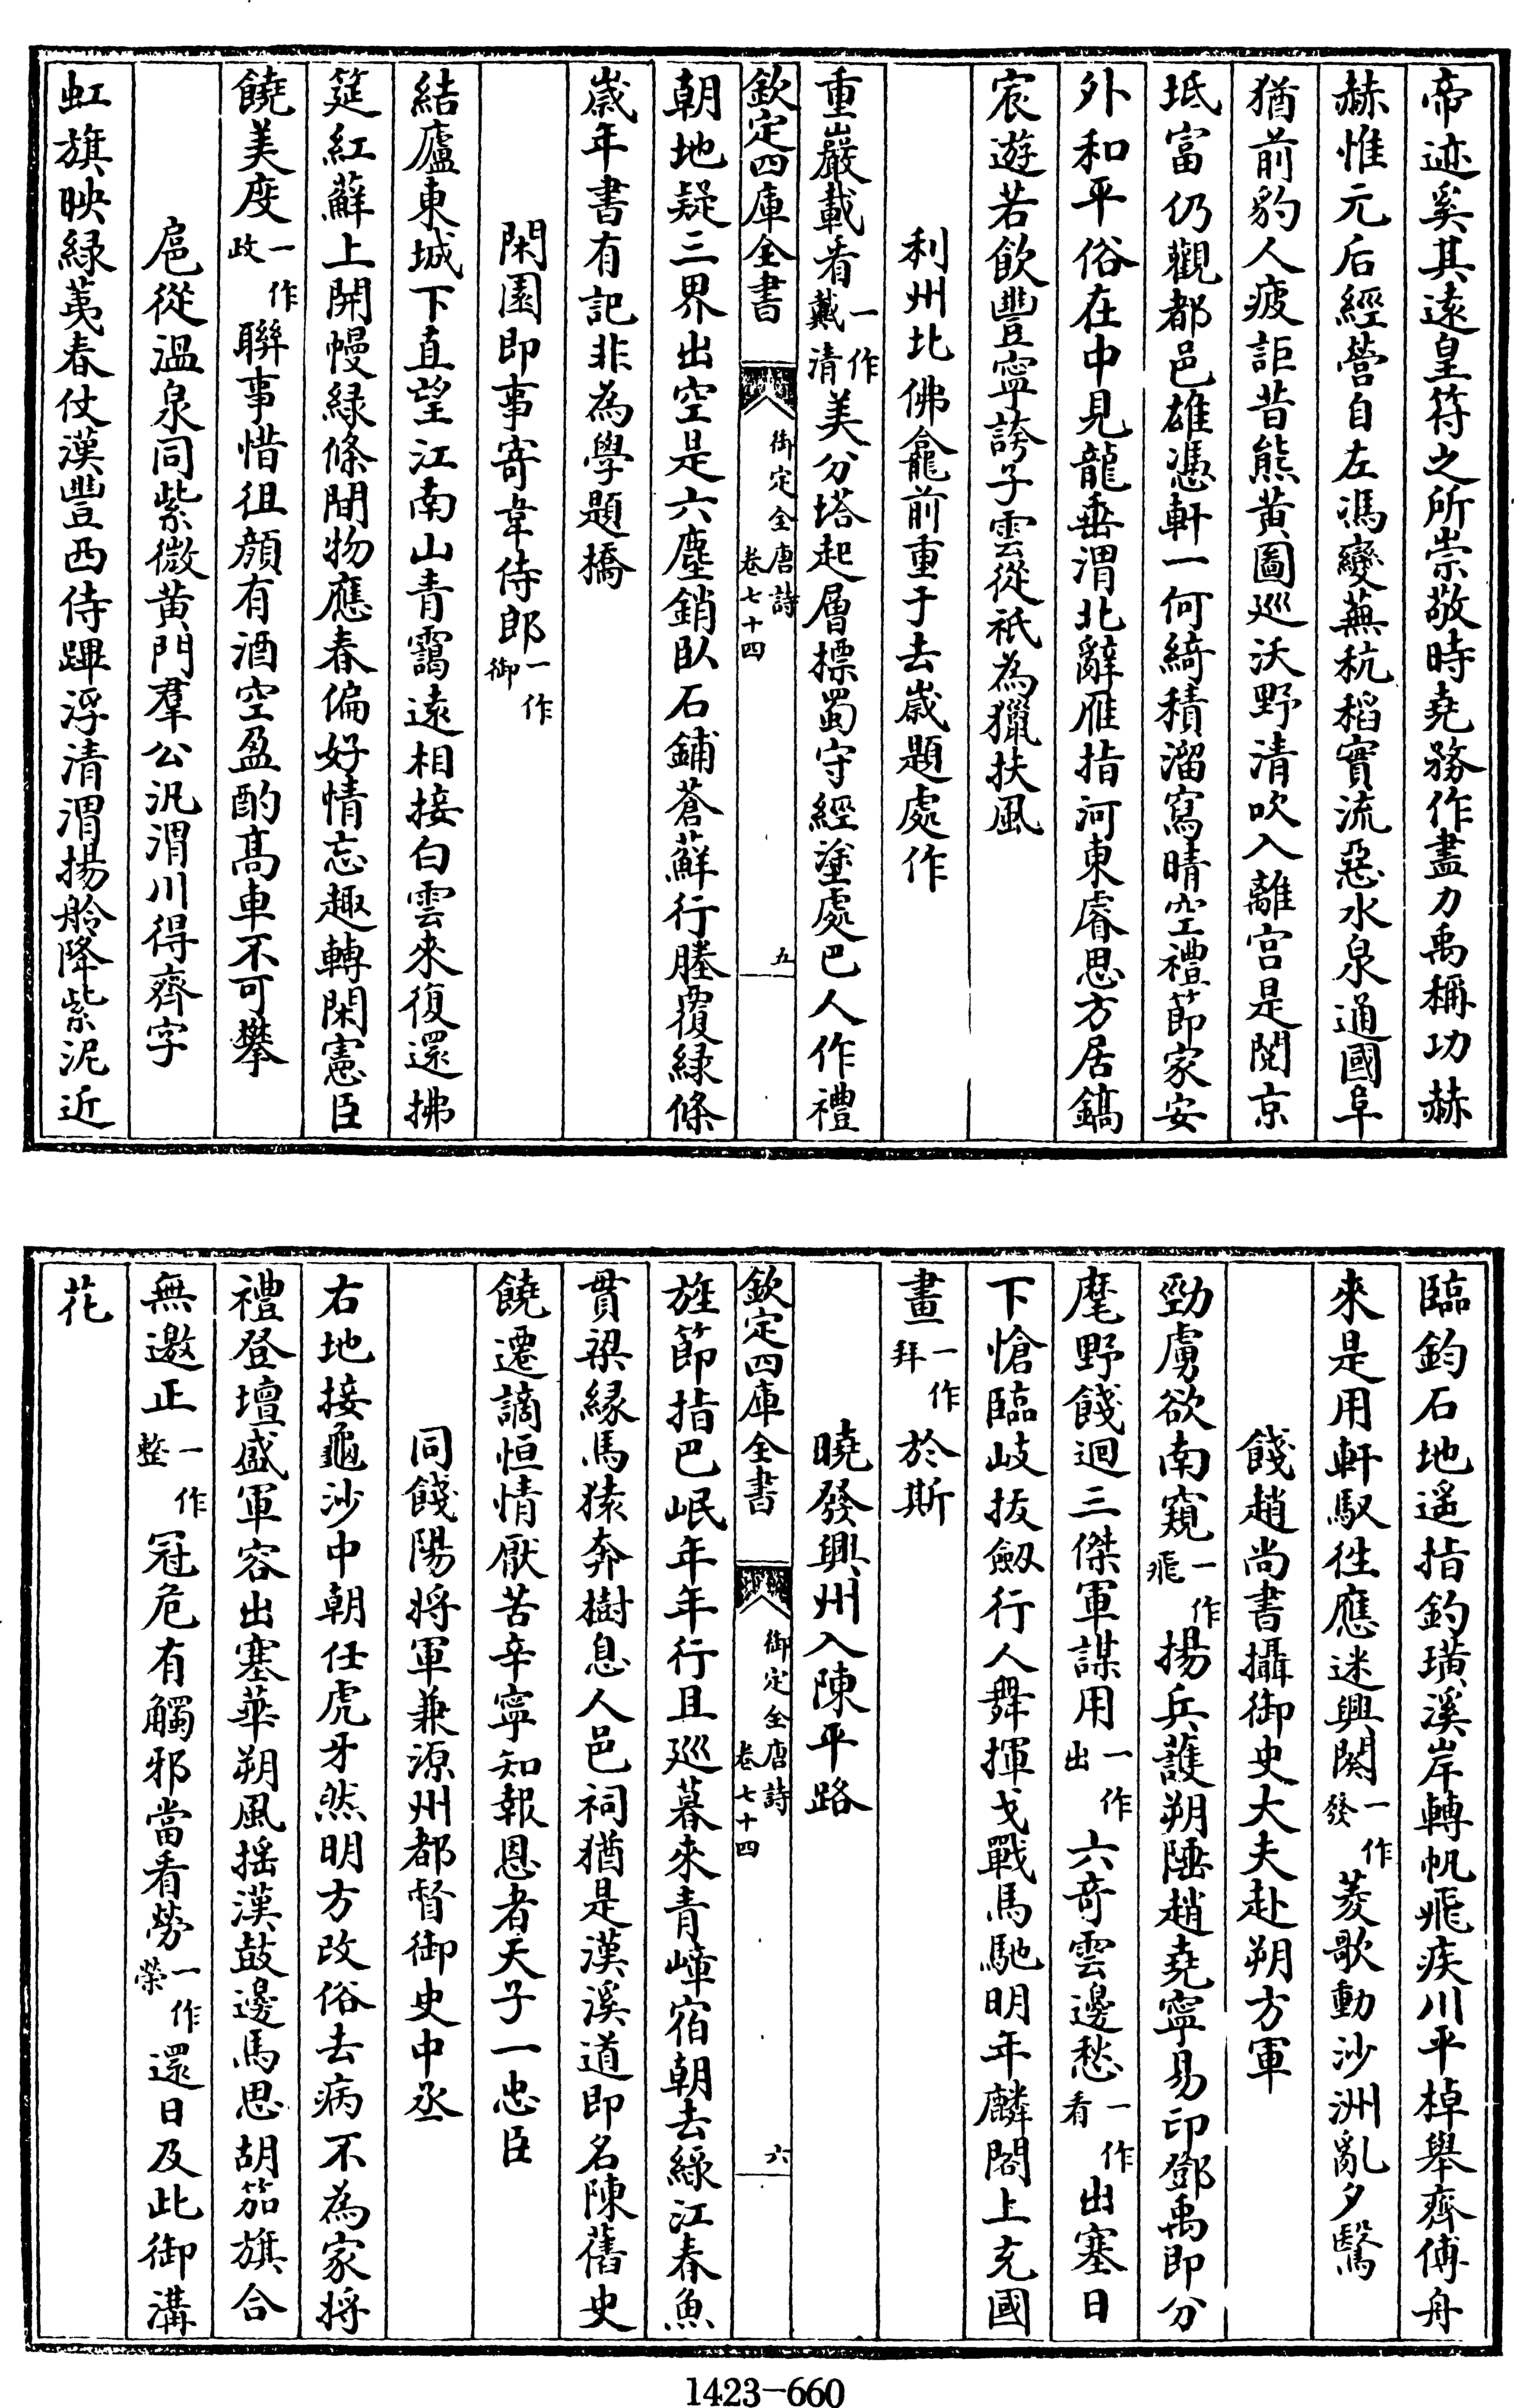 帝迹奚其遠皇符之所崇敬時堯務作盡力禹稱功赫
赫惟元后經營自左馮變蕪秔稻實流惡水泉通國阜
猶前豹人疲詎昔熊黄圖巡沃野清吹入離宫是閱京
坻富仍觀都邑雄憑軒一何綺積溜寫晴空禮節家安
外和平俗在中見龍垂渭北辭雁指河東睿思方居鎬
宸遊若飲豐寧誇子雲從祇為獵扶風
利州北佛龕前重于去嵗題處作
重巖載看一作戴清美分塔起層標蜀守經塗處巴人作禮
欽定四庫全書 御定全唐詩 卷七十四 五
朝地疑三界出空是六塵銷臥石鋪蒼蘚行塍覆緑條
嵗年書有記非為學題橋
閑園即事寄韋侍郎一作御
結廬東城下直望江南山青靄遠相接白雲來復還拂
筵紅蘚上開幔緑條閒物應春偏好情忘趣轉閑憲臣
饒美度一作政聨事惜徂顔有酒空盈酌髙車不可攀
扈從溫泉同紫微黄門羣公汎渭川得齊字
虹旗映緑荑春仗漢豐西侍蹕浮清渭揚舲降紫泥近
臨鈞石地遥指釣璜溪岸轉帆飛疾川平棹舉齊傅舟
來是用軒馭徃應迷興闋一作發菱歌動沙洲亂夕鷖
餞趙尚書攝御史大夫赴朔方軍
勁虜欲南窺一作飛揚兵䕶朔陲趙堯寧易印鄧禹即分
麾野餞迴三傑軍謀用一作出六奇雲邊愁一作看出塞日
下愴臨岐拔劔行人舞揮戈戰馬馳明年麟閣上充國
畫一作拜於斯
曉發興州入陳平路
欽定四庫全書 御定全唐詩 卷七十四 六
旌節指巴岷年年行且巡暮來青嶂宿朝去緑江春魚
貫梁縁馬猿奔樹息人邑祠猶是漢溪道即名陳舊史
饒遷謫恒情厭苦辛寧知報恩者天子一忠臣
同餞陽将軍兼源州都督御史中丞
右地接龜沙中朝任虎牙然明方改俗去病不為家将
禮登壇盛軍容出塞華朔風揺漢鼓邊馬思胡笳旗合
無邀正一作整冠危有觸邪當看勞一作榮還日及此御溝
花
1423-660